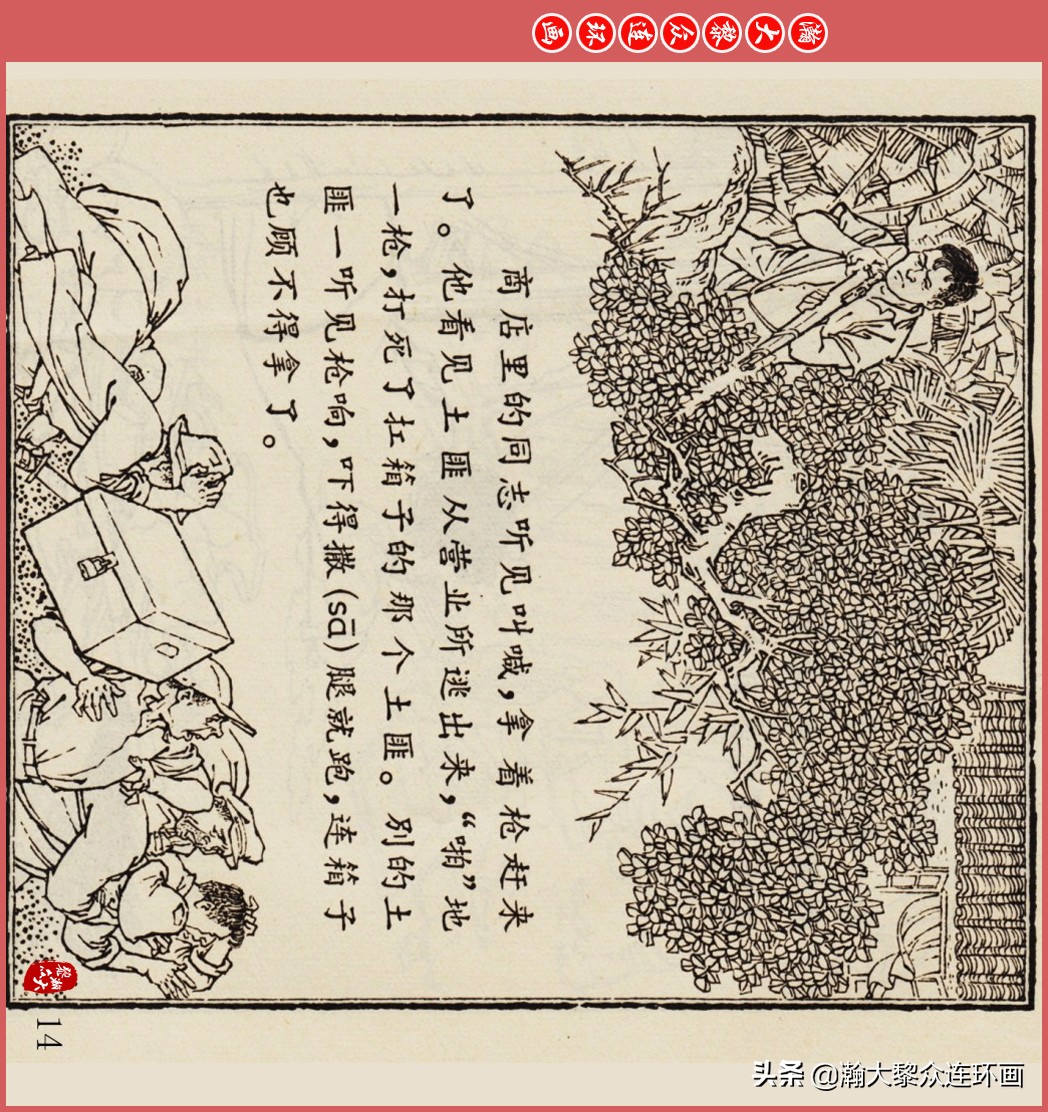 瀚大黎众连环画
商店里的同志听见叫喊，拿着枪赶来
了。他看见土匪从营业所逃出来，“啪”地
一枪，打死了扛箱子的那个土匪。别的土
匪一听见枪响，吓得撒(sā)腿就跑，连箱子
也顾不得拿了。
瀚大黎众
14
头条 @瀚大黎众连环画